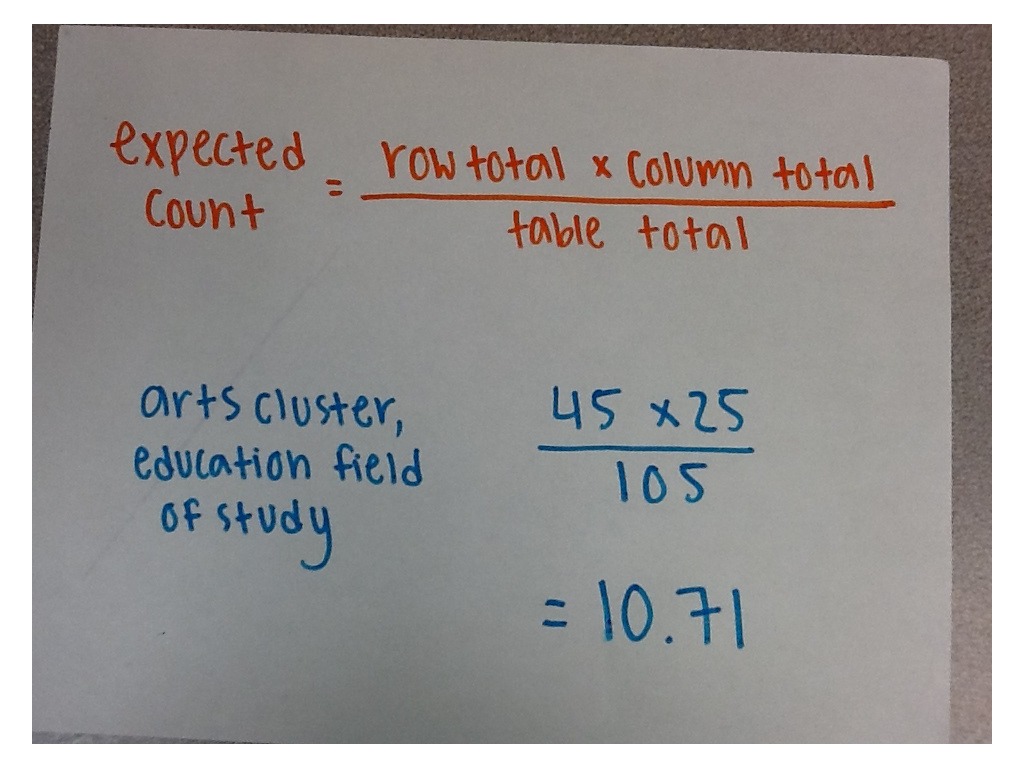 expected
count
=
row total x column total
table total
arts cluster,
education field
of study
45 x 25
105
= 10.71